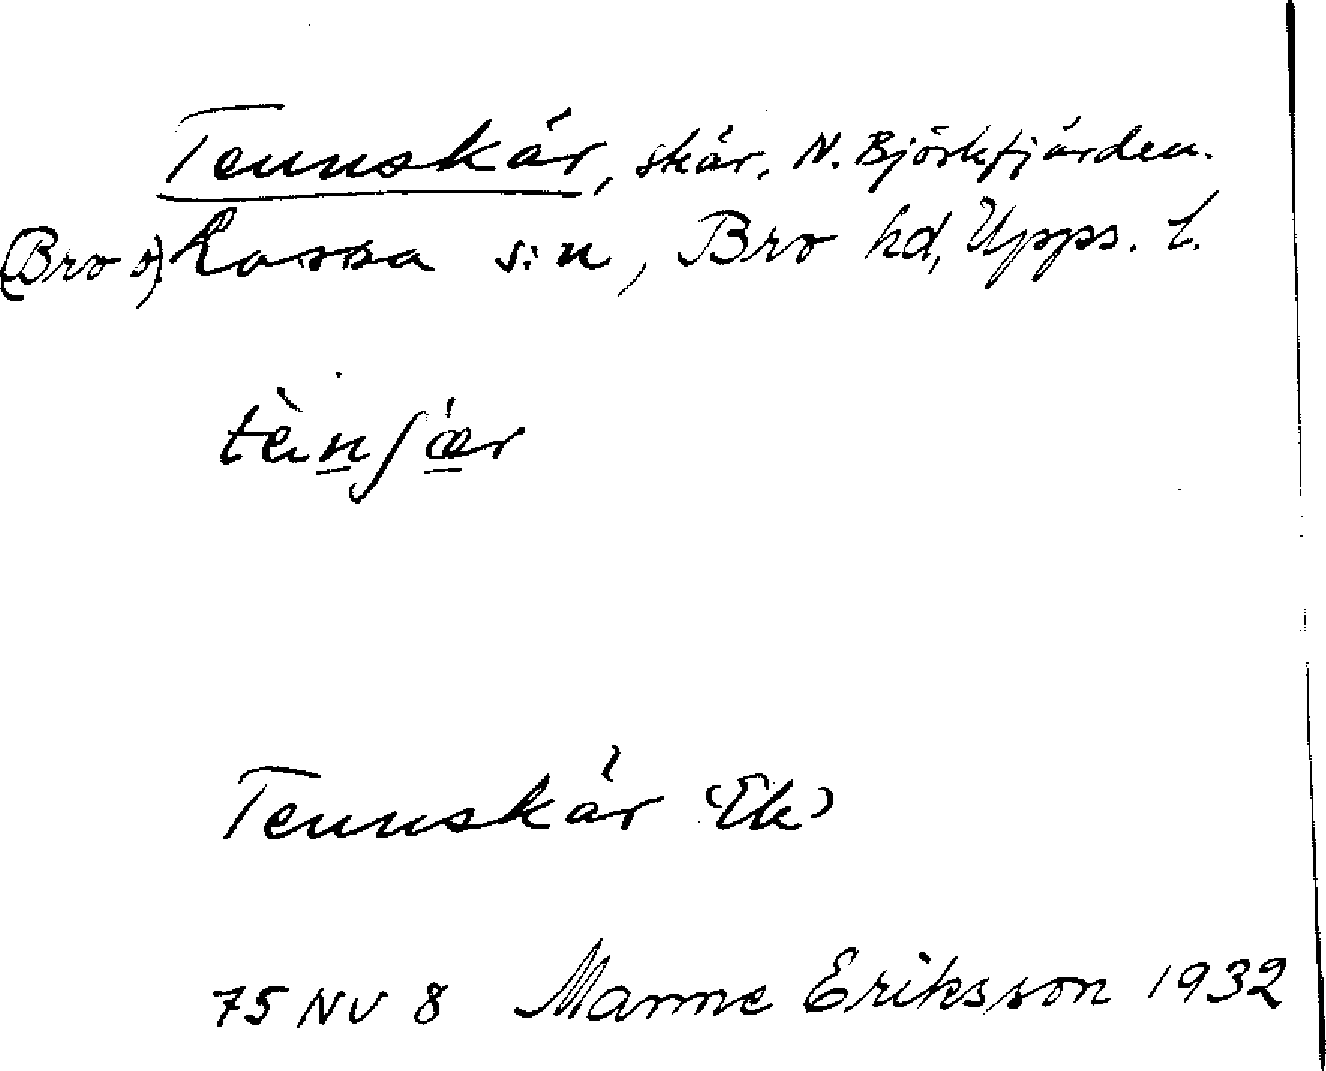 Tennskär, skär, N. Björkfjärden.
(Bro o) Låssa s:n, Bro hd, Upps. l.
tènʃǽr
Tennskär (Ek)
75 NV 8 Manne Eriksson 1932